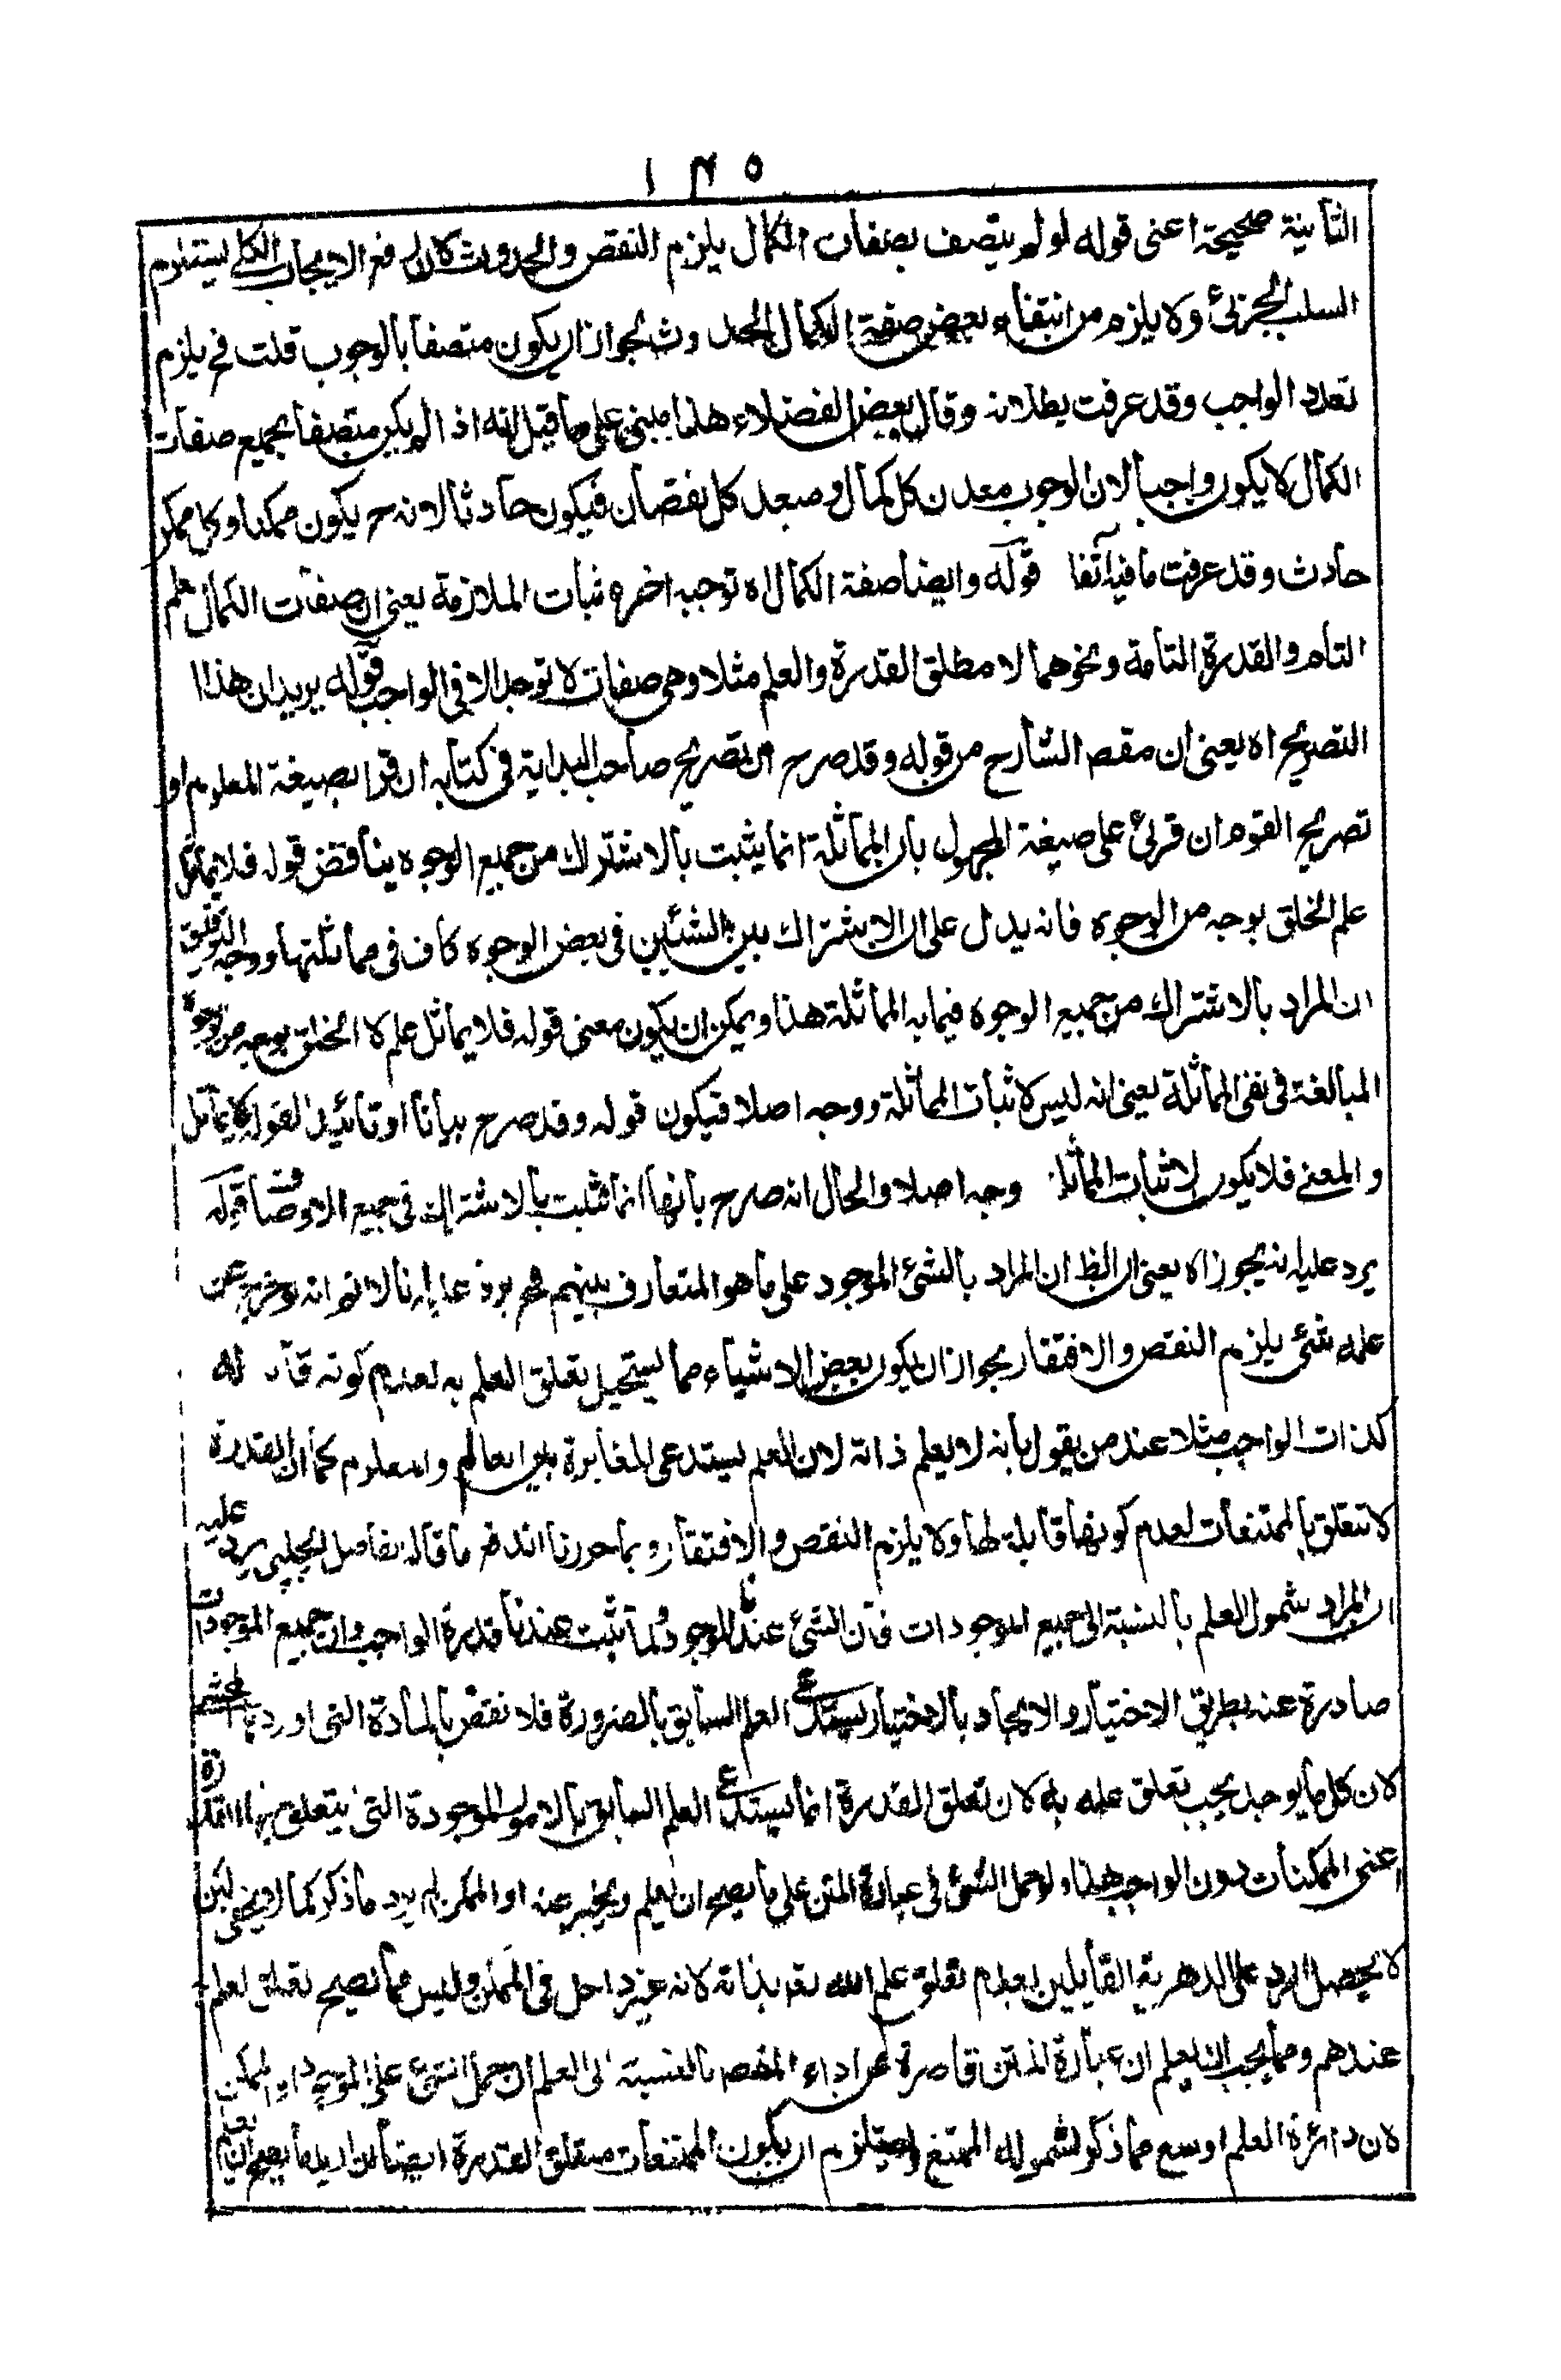 ١٣٥
الثانية صحيحة اعنى قوله لولم يتصف بصفات الكمال يلزم النقص والحدوث لان رفع الايجاب الكلى يستلزم
السلب الجزئى ولا يلزم من انتفاء بعض صفة الكمال الحدوث لجواز ان يكون متصفا بالوجوب قلت فح يلزم
تعدد الواجب وقد عرفت بطلانه وقال بعض الفضلاء هذا مبنى على ما قيل انه اذا لم يكن متصفا بجميع صفات
الكمال لا يكون واجبا لان الوجوب معدن كل كمال ومبعد كل نقصان فيكون حادثا لانه ح يكون ممكنا وكل ممكن
حادث وقد عرفت ما فيه آنفا قوله وايضا صفة الكمال اه توجيه اخر لاثبات الملازمة يعنى ان صفات الكمال علم
التام والقدرة التامة ونحوهما لا مطلق القدرة والعلم مثلا وهى صفات لا توجد الا فى الواجب قوله يريد ان هذا
التصريح اه يعنى ان مقصد الشارح من قوله وقد صرح ان تصريح صاحب البداية فى كتابه ان قرأ بصيغة المعلوم او
تصريح القوم ان قرئ على صيغة المجهول بان المماثلة انما يثبت بالاشتراك من جميع الوجوه يناقض قوله فلا يماثل
علم الخلق بوجه من الوجوه فانه يدل على ان الاشتراك بين الشئين فى بعض الوجوه كاف فى مماثلتها ووجه التوفيق
ان المراد بالاشتراك من جميع الوجوه فيما به المماثلة هذا ويمكن ان يكون معنى قوله فلا يماثل علمه الخلق بوجه من الوجوه
المبالغة فى نفى المماثلة يعنى انه ليس لاثبات المماثلة ووجه اصلا فيكون قوله وقد صرح بيانا او تائيدا لقوله لا يماثل
والمعنى فلا يكون لاثبات المماثلة وجه اصلا والحال انه صرح بانها انما ثبت بالاشتراك فى جميع الاوصاف قوله
يرد عليه انه يجوز اه يعنى ان الظ ان المراد بالشئ الموجود على ما هو المتعارف بينهم فح يرد عليه انا لا نم انه لو خرج عن
علمه شئ يلزم النقص والافتقار بجواز ان يكون بعض الاشياء مما يستحيل تعلق العلم به لعدم كونه قابلا له
كذات الواجب مثلا عند من يقول بانه لا يعلم ذاته لان العلم يستدعى المغايرة بين العالم والمعلوم كما ان القدرة
لا تتعلق بالممتنعات لعدم كونها قابلة لها ولا يلزم النقص والافتقار وبما حررنا اندفع ما قاله الفاضل الچلپى يرد عليه
ان المراد شمول العلم بالنسبة الى جميع الموجودات فان الشئ عندنا الموجود ولما ثبت عندنا قدرة الواجب وان جميع الموجودات
صادرة عنه بطريق الاختيار والايجاد بالاختيار يستدعى العلم السابق بالضرورة فلا نقض بالمادة التى اوردها المحشى
لان كل ما يوجد يجب تعلق علمه به لان تعلق القدرة انما يستدعى العلم السابق بالامور الموجودة التى يتعلق بها القدرة
اعنى الممكنات دون الواجب هذا ولو حمل الشئ فى عبارة المتن على ما يصح ان يعلم ويخبر عنه او الممكن لم يرد ما ذكر كما لا يخفى لكن
لا يحصل الرد على الدهرية القايلين بعدم تعلق علم الله تعه بذاته لانه غير داخل فى الممكن وليس مما يصح تعلق العلم
عندهم ومما يجب ان يعلم ان عبارة المتن قاصرة عن اداء المقصد بالنسبة الى العلم ان حمل الشئ على الموجود او الممكن
لان دائرة العلم اوسع مما ذكر لشموله الممتنع ويستلزم ان يكون الممتنعات متعلق القدرة ايضا ان اريد ما يصح ان يعلم